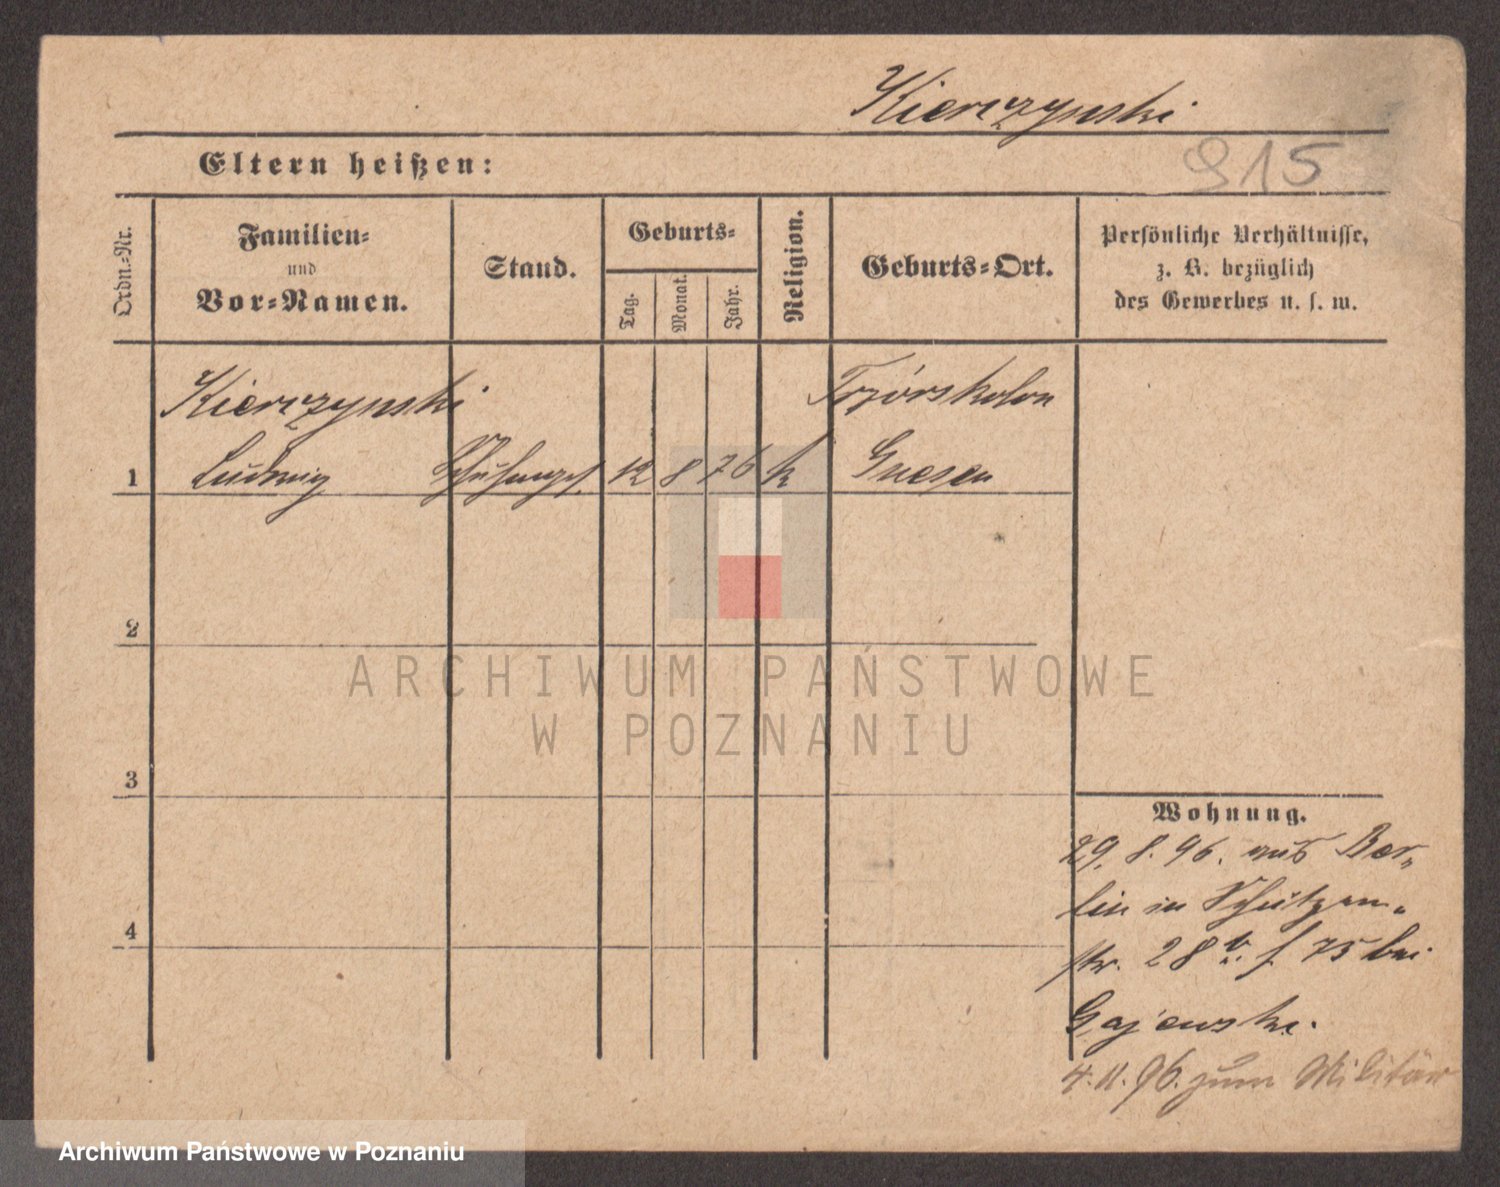 Kierczynski
915
Eltern heißen:
Ordn.-Nr.
Familien-
und
Vor-Namen.
Stand.
Geburts-
Tag.
Monat.
Jahr.
Religion.
Geburts-Ort.
Persönliche Verhältnisse,
z. B. bezüglich
des Gewerbes u. s. w.
Kierczynski
1 Ludwig 12 8 76 k Gnesen
2
ARCHIWUM PAŃSTWOWE
W POZNANIU
3
Wohnung.
29. 8. 96. aus Ber-
4
lin in Schützen-
str. 28 b. f 75 bei
Gajewski.
4. 11. 96. zum Militär
Archiwum Państwowe w Poznaniu